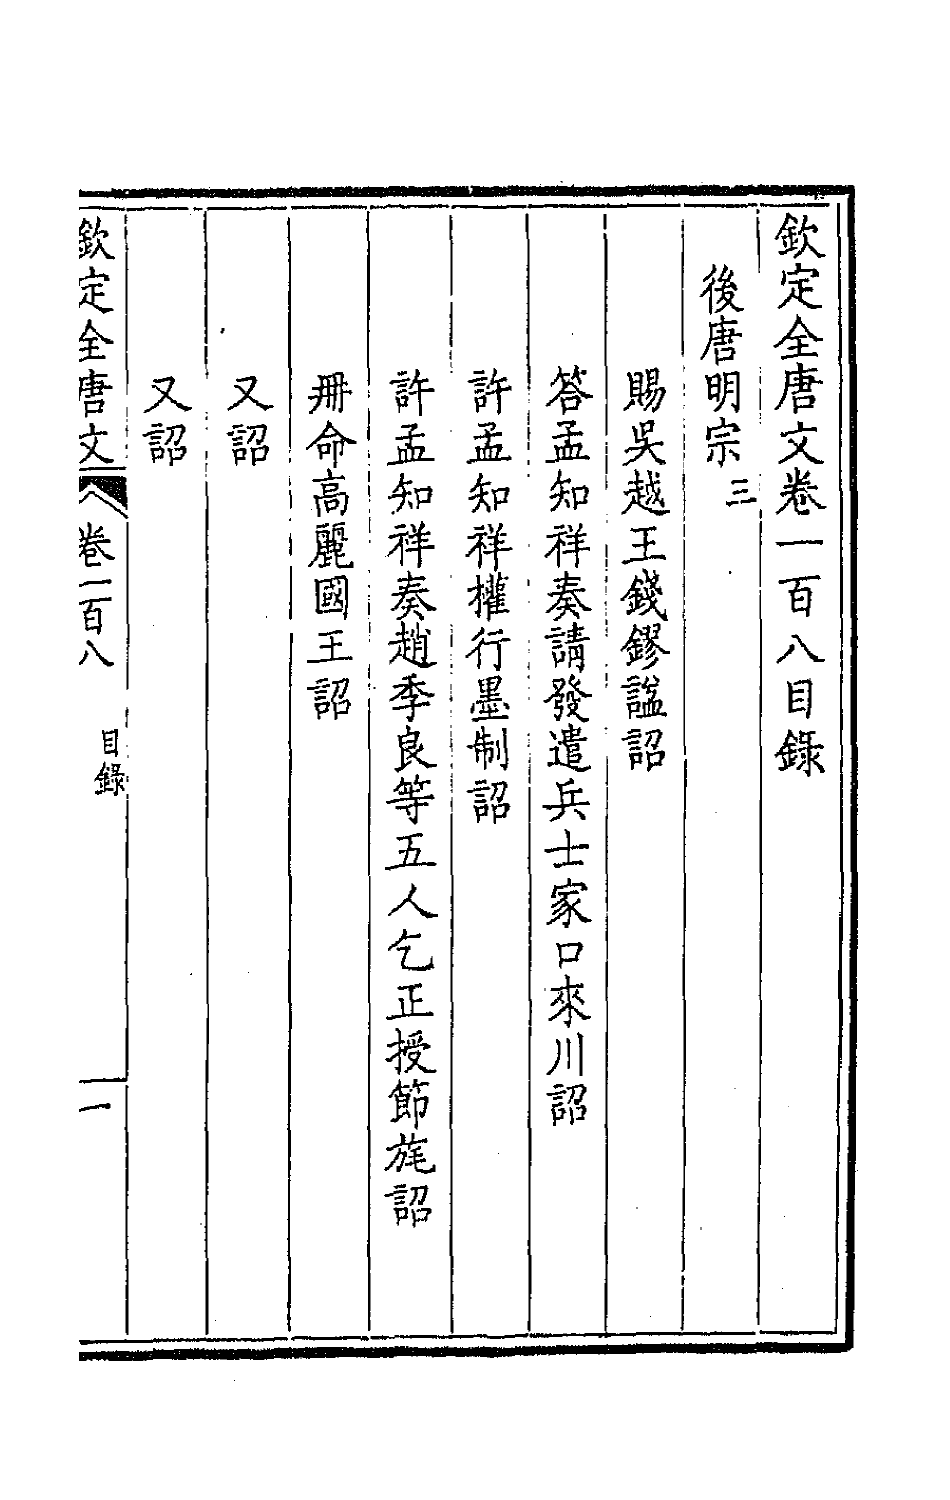 欽定全唐文卷一百八目錄
後唐明宗三
賜吳越王錢鏐諡詔
答孟知祥奏請發遣兵士家口來川詔
許孟知祥權行墨制詔
許孟知祥奏趙季良等五人乞正授節旄詔
冊命高麗國王詔
又詔
又詔
欽定全唐文 卷一百八 目錄 一